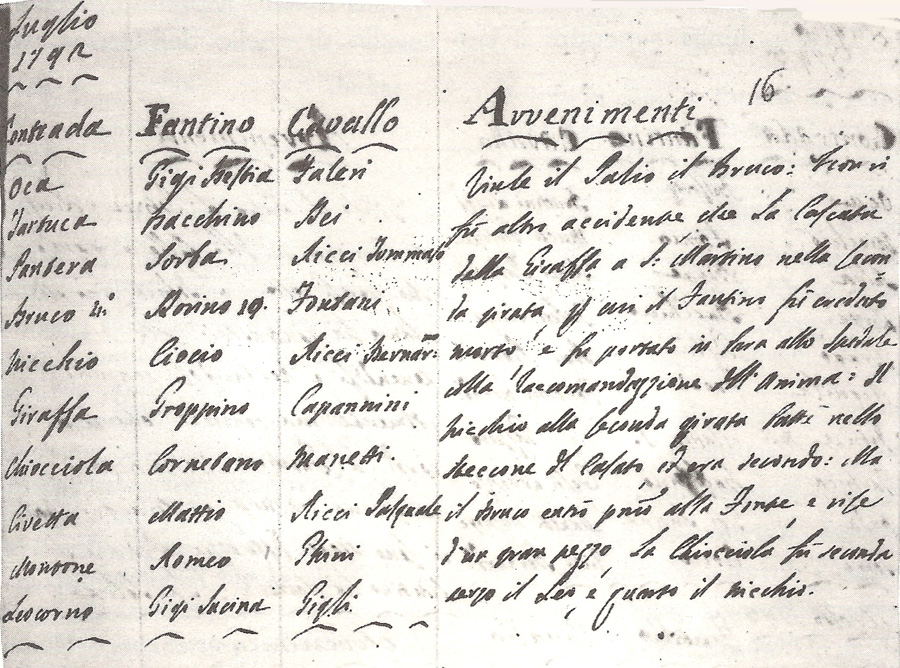 Luglio
1792
16
Contrada Fantino Cavallo Avvenimenti
Oca Gigi Bestia Faleri
Tartuca Bacchino Bei
Pantera Sorba Ricci Tommaso
Bruco 4.º Morino 19. Fontani
Nicchio Ciocio Ricci Bernar:
Giraffa Groppino Capannini
Chiocciola Cornetano Manetti.
Civetta Mattio Ricci Pasquale
Montone Romeo Ghini
Leocorno Gigi Sucina Gigli.
Vinse il Palio il Bruco: Non vi
fù altro accidente che la Cascata
della Giraffa a S. Martino nella secon
da girata, cui il Fantino fù creduto
morto, e fu portato in bara allo Spedale
colla raccomandazione dell'Anima: Il
Nicchio alla seconda girata batté nello
steccone di Casato, ed era secondo: Ma
il Bruco entrò primo alla Fonte, e vise
d'un gran pezzo, la Chiocciola fù seconda
terzo il Leo, e quarto il Nicchio.